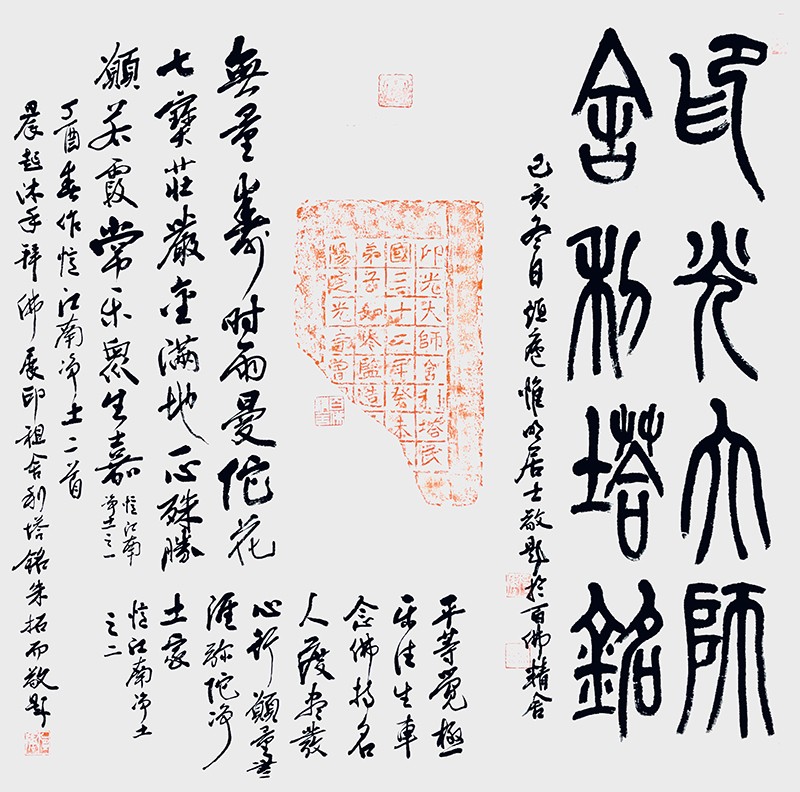 印光大師
舍利塔銘
己亥冬日恒庵惟明居士敬題於百佛精舍
印光大師舍利塔民
國三十二年癸未
弟子如岑監造
陽定光寺曾
無量壽时雨曼陀花
七寶莊嚴金滿地心殊勝
願若霞常乐眾生嘉
忆江南
淨土之一
平等覺極
乐往生車
念佛持名
人度發
心行願量無
涯弥陀淨
土家
忆江南淨土
之二
丁酉春作忆江南淨土二首
晨起沐手拜佛展印祖舍利塔銘朱拓而敬題